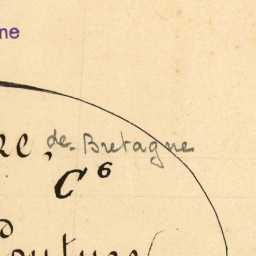 ne
re, de Bretagne
C⁶
outure